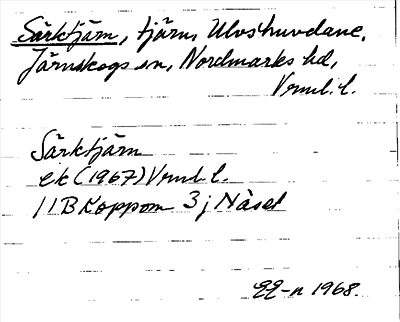 Särktjärn, tjärn, Ulvshuvdane,
Järnskogs sn, Nordmarks hd,
Vrml. l.
Särktjärn
ek (1967) Vrml. l.
11B Koppom 3j Näset
EE-n 1968.